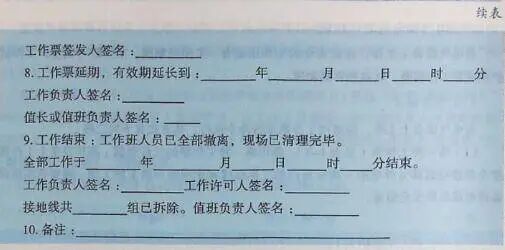 续表
工作票签发人签名：________
8.工作票延期，有效期延长到：________年______月____日____时____分
工作负责人签名：________
值长或值班负责人签名：________
9.工作结束：工作班人员已全部撤离，现场已清理完毕。
全部工作于______年________月____日____时____分结束。
工作负责人签名：________工作许可人签名：________
接地线共______组已拆除。值班负责人签名：________
10.备注：________________________________